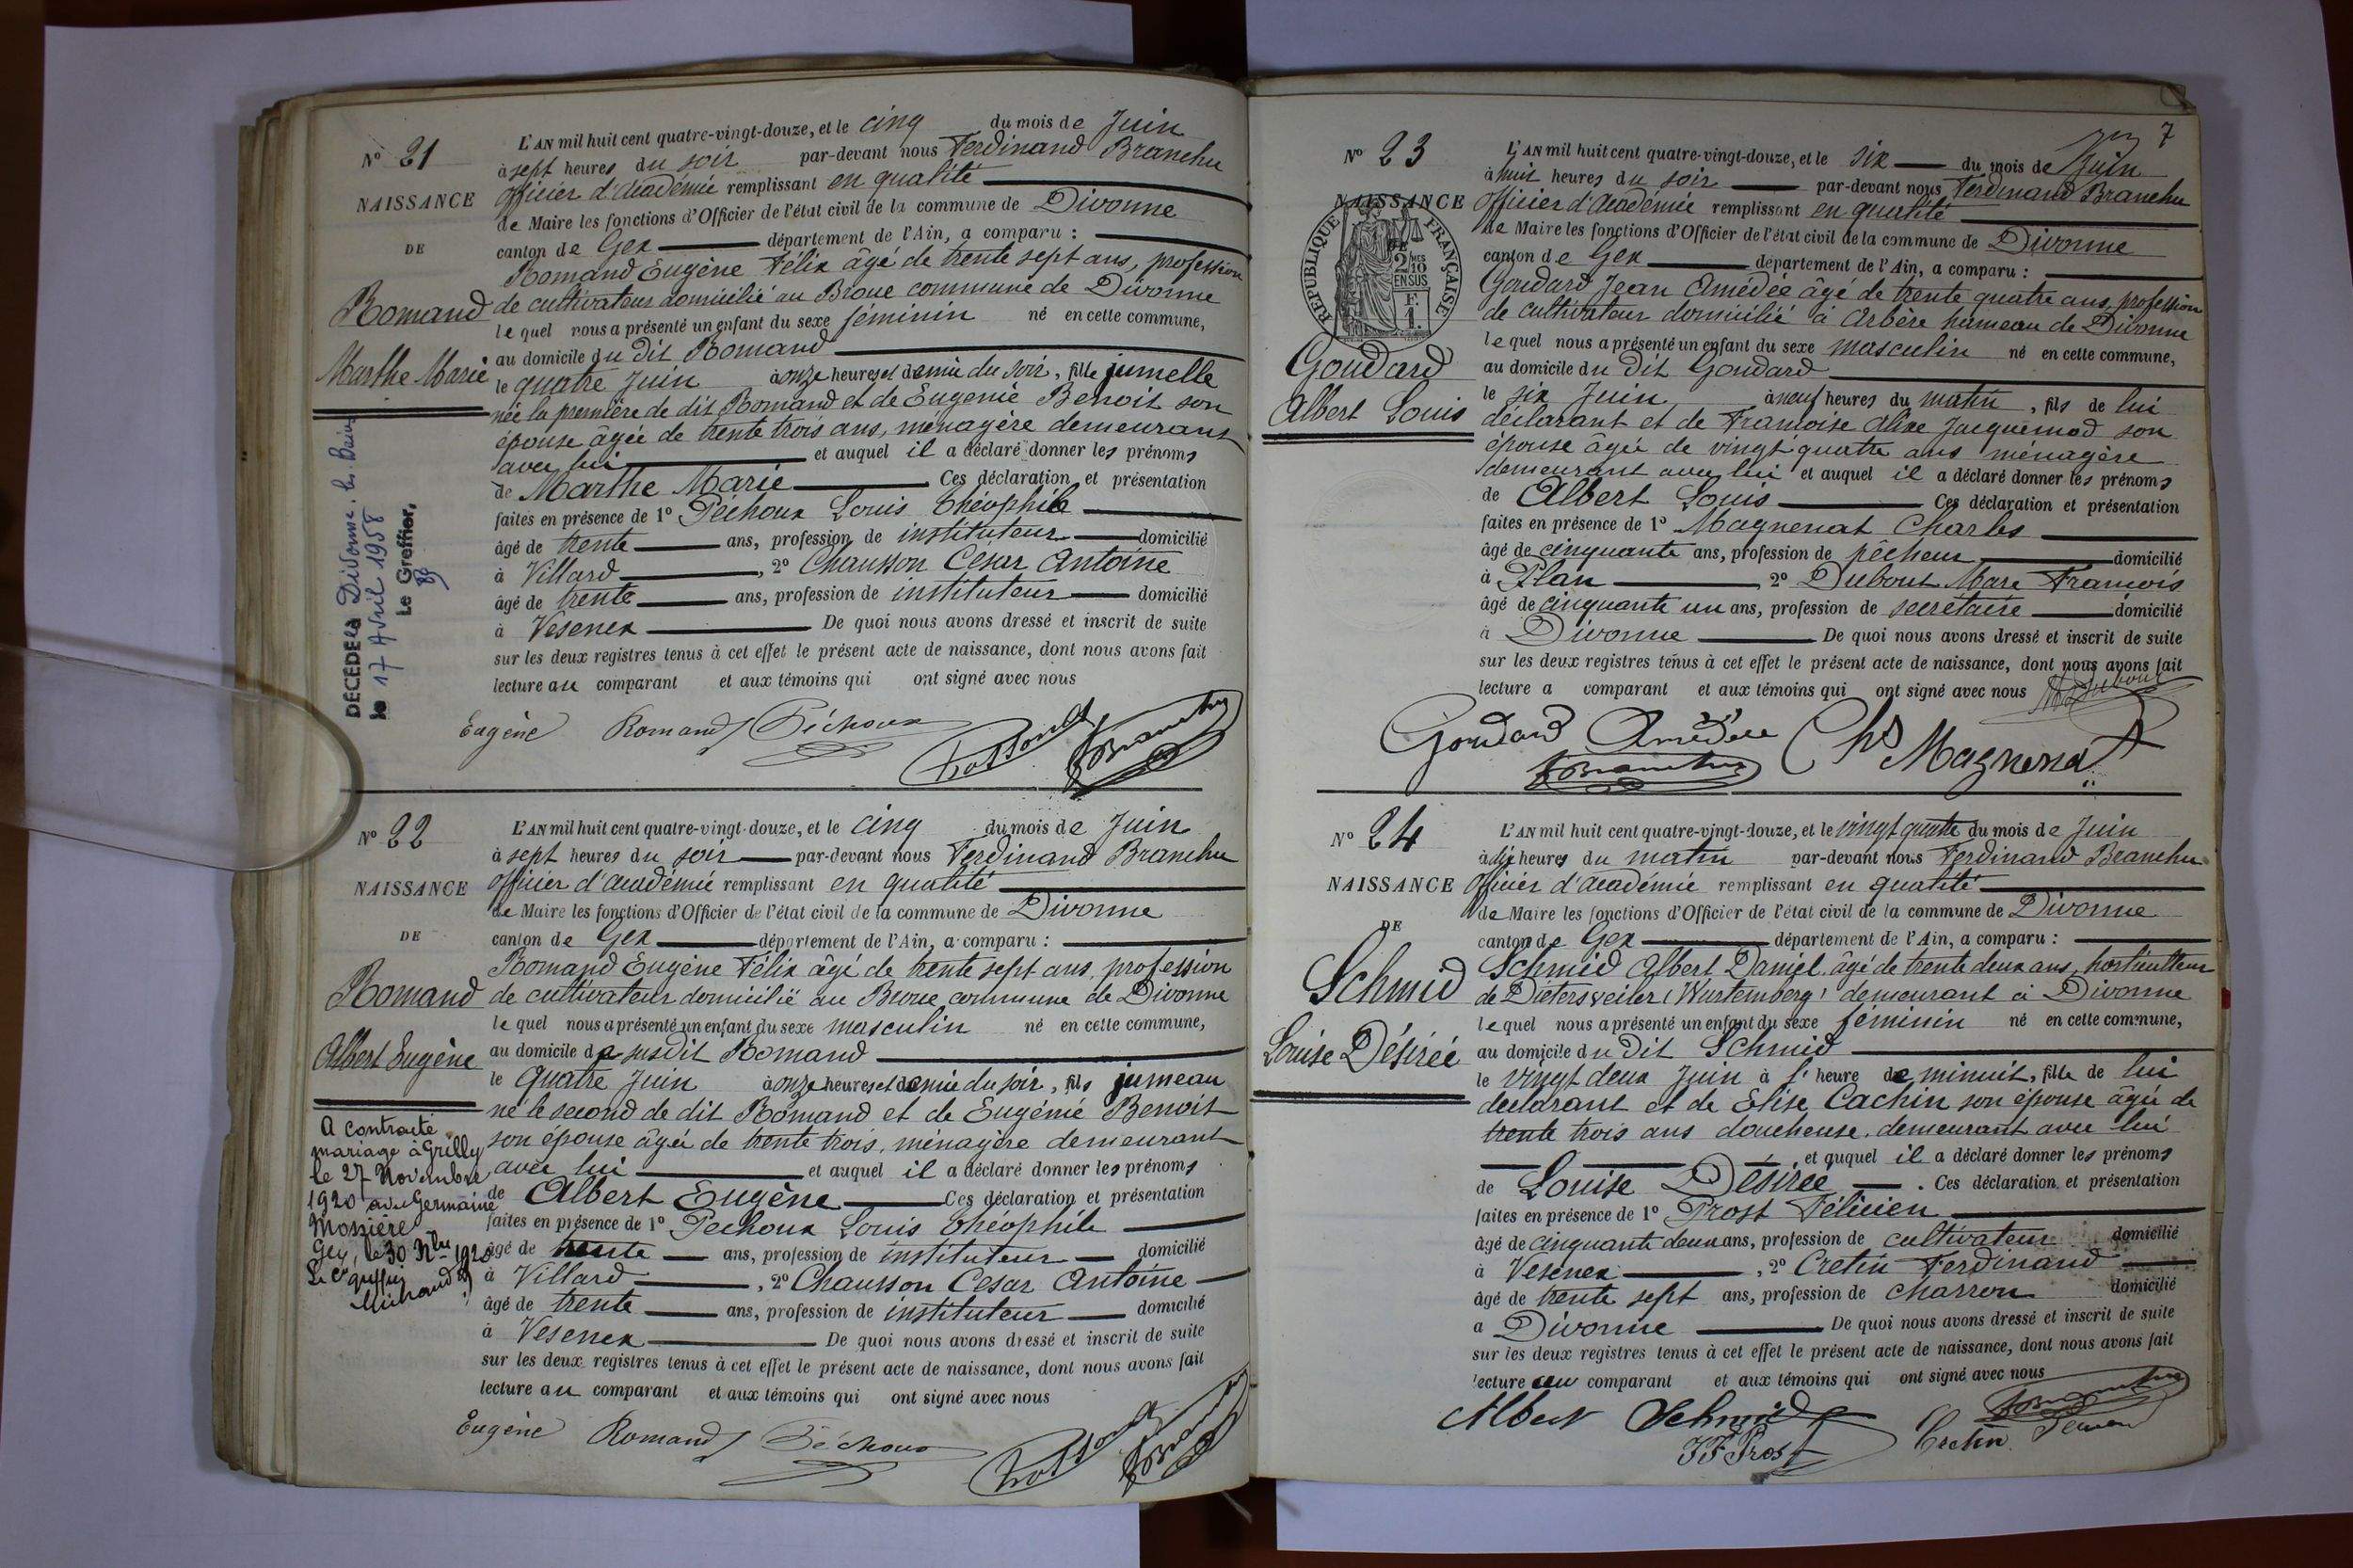 N° 21
NAISSANCE
DE
Romand
Marthe Marie
DÉCÉDÉE à Divonne-les-Bains
le 17 Avril 1958
Le Greffier,
L'AN mil huit cent quatre-vingt-douze, et le cinq du mois de Juin
à sept heures du soir par-devant nous Ferdinand Branchu
officier d'académie remplissant en qualité
de Maire les fonctions d'Officier de l'état civil de la commune de Divonne
canton de Gex département de l'Ain, a comparu :
Romand Eugène Félix âgé de trente sept ans, profession
de cultivateur domicilié au Broue commune de Divonne
lequel nous a présenté un enfant du sexe féminin né en cette commune,
au domicile du dit Romand
le quatre Juin à onze heures et demie du soir, fille jumelle
née la première de dit Romand et de Eugénie Benoit son
épouse âgée de trente trois ans, ménagère demeurant
avec lui et auquel il a déclaré donner les prénoms
de Marthe Marie Ces déclaration et présentation
faites en présence de 1° Péchoux Louis Théophile
âgé de trente ans, profession de instituteur domicilié
à Villard, 2° Chausson César Antoine
âgé de trente ans, profession de instituteur domicilié
à Vesenex De quoi nous avons dressé et inscrit de suite
sur les deux registres tenus à cet effet le présent acte de naissance, dont nous avons fait
lecture au comparant et aux témoins qui ont signé avec nous
Eugène Romand Péchoux
N° 22
NAISSANCE
DE
Romand
Albert Eugène
A contracté
mariage à Grilly
le 27 Novembre
1920 avec Germaine
Mossière
Gex, le 30 Nbre 1920
Le Cis greffier
Michaud
L'AN mil huit cent quatre-vingt-douze, et le cinq du mois de Juin
à sept heures du soir par-devant nous Ferdinand Branchu
officier d'académie remplissant en qualité
de Maire les fonctions d'Officier de l'état civil de la commune de Divonne
canton de Gex département de l'Ain, a comparu :
Romand Eugène Félix âgé de trente sept ans, profession
de cultivateur domicilié au Broue commune de Divonne
lequel nous a présenté un enfant du sexe masculin né en cette commune,
au domicile de susdit Romand
le quatre Juin à onze heures et demie du soir, fils jumeau
né le second de dit Romand et de Eugénie Benoit
son épouse âgée de trente trois, ménagère demeurant
avec lui et auquel il a déclaré donner les prénoms
de Albert Eugène Ces déclaration et présentation
faites en présence de 1° Pechoux Louis Théophile
âgé de trente ans, profession de instituteur domicilié
à Villard, 2° Chausson Cesar Antoine
âgé de trente ans, profession de instituteur domicilié
à Vesenex De quoi nous avons dressé et inscrit de suite
sur les deux registres tenus à cet effet le présent acte de naissance, dont nous avons fait
lecture au comparant et aux témoins qui ont signé avec nous
Eugène Romand Péchoux
7
N° 23
NAISSANCE
DE
RÉPUBLIQUE FRANÇAISE
2/10 MES
EN SUS
F.
1.
Goudard
Albert Louis
L'AN mil huit cent quatre-vingt-douze, et le six du mois de Juin
à huit heures du soir par-devant nous Ferdinand Branchu
officier d'académie remplissant en qualité
de Maire les fonctions d'Officier de l'état civil de la commune de Divonne
canton de Gex département de l'Ain, a comparu :
Goudard Jean Amédée âgé de trente quatre ans, profession
de cultivateur domicilié à Arbère hameau de Divonne
lequel nous a présenté un enfant du sexe masculin né en cette commune,
au domicile du dit Goudard
le six Juin à neuf heures du matin, fils de lui
déclarant et de Françoise Alixe Jacquemod son
épouse âgée de vingt quatre ans ménagère
demeurant avec lui et auquel il a déclaré donner les prénoms
de Albert Louis Ces déclaration et présentation
faites en présence de 1° Magnenat Charles
âgé de cinquante ans, profession de pêcheur domicilié
à Plan 2° Dubout Marc François
âgé de cinquante un ans, profession de secrétaire domicilié
à Divonne De quoi nous avons dressé et inscrit de suite
sur les deux registres tenus à cet effet le présent acte de naissance, dont nous avons fait
lecture a comparant et aux témoins qui ont signé avec nous
Dubout
Goudard Amédée Chs Magnenat
Branchu
N° 24
NAISSANCE
DE
Schmid
Louise Désirée
L'AN mil huit cent quatre-vingt-douze, et le vingt quatre du mois de Juin
à dix heures du matin par-devant nous Ferdinand Branchu
officier d'académie remplissant en qualité
de Maire les fonctions d'Officier de l'état civil de la commune de Divonne
canton de Gex département de l'Ain, a comparu :
Schmid Albert Daniel, âgé de trente deux ans, horticulteur
de Dietersweiler (Wurtemberg) demeurant à Divonne
lequel nous a présenté un enfant du sexe féminin né en cette commune,
au domicile du dit Schmid
le vingt deux Juin à l'heure de minuit, fille de lui
déclarant et de Elise Cachin son épouse âgée de
trente trois ans doucheuse, demeurant avec lui
et auquel il a déclaré donner les prénoms
de Louise Désirée. Ces déclaration et présentation
faites en présence de 1° Prost Félicien
âgé de cinquante deux ans, profession de cultivateur domicilié
à Vesenex, 2° Cretin Ferdinand
âgé de trente sept ans, profession de charron domicilié
a Divonne De quoi nous avons dressé et inscrit de suite
sur les deux registres tenus à cet effet le présent acte de naissance, dont nous avons fait
lecture au comparant et aux témoins qui ont signé avec nous
Albert Schmid Cretin
JF Prost